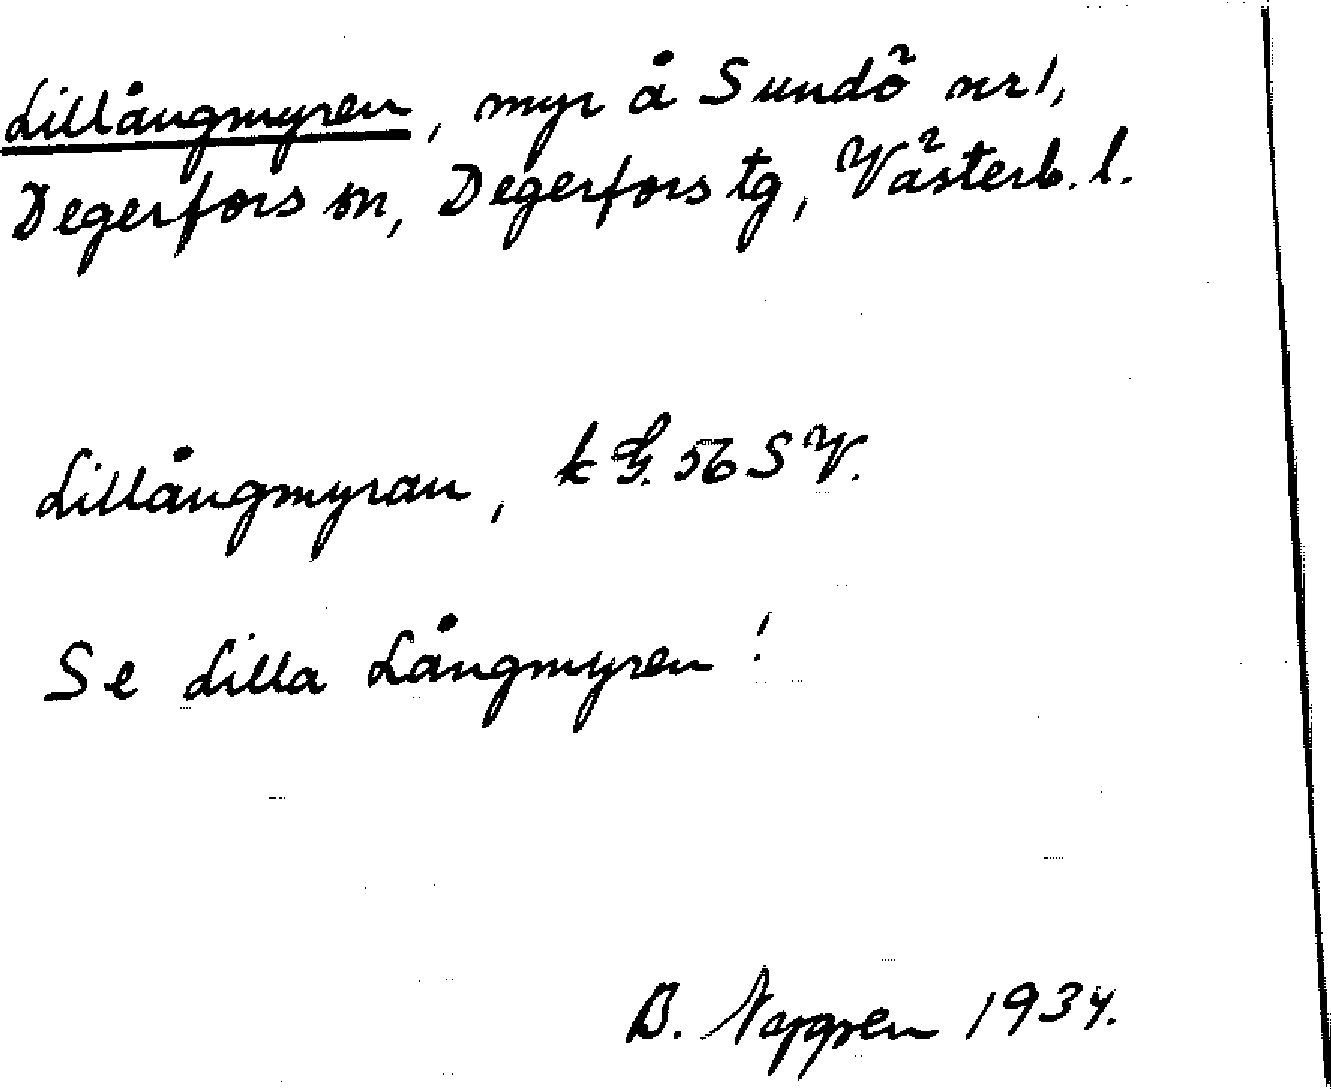 Lillångmyren, myr å Sundö nr 1,
Degerfors sn, Degerfors tg, Västerb. l.
Lillångmyran, k G. 56 SV.
Se Lilla Långmyren!
B. 1934.